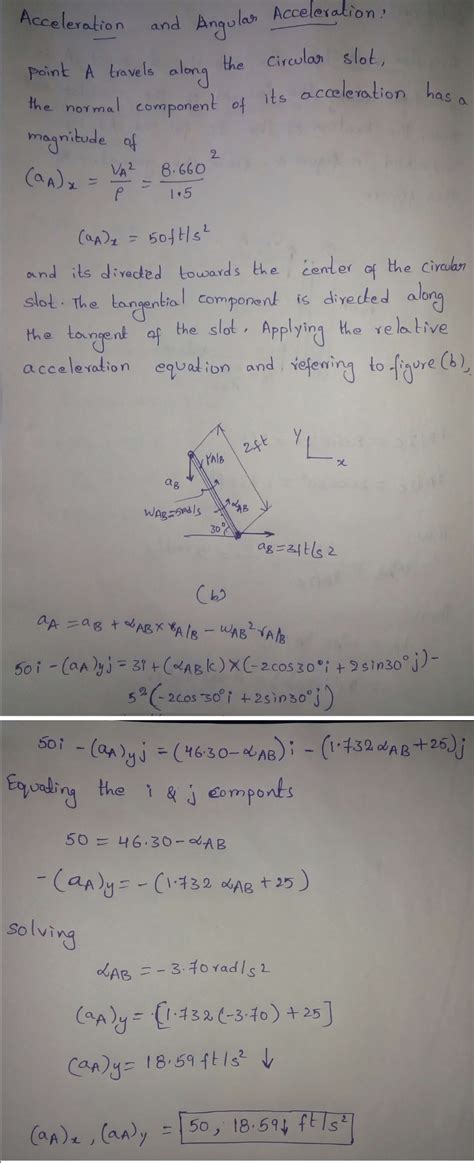 Acceleration and Angular Acceleration:
point A travels along the circular slot,
the normal component of its acceleration has a
magnitude of
(aA)x = VA²/ρ = 8.660²/1.5
(aA)x = 50ft/s²
and its directed towards the center of the circular
slot. The tangential component is directed along
the tangent of the slot. Applying the relative
acceleration equation and referring to figure (b),
2ft
Y
x
rA/B
aB
WAB=5rad/s
αAB
30°
aB=3ft/s2
(b)
aA = aB + αAB × rA/B - ωAB² rA/B
50i - (aA)yj = 3i + (αABk) × (-2cos30°i + 2sin30°j) -
5²(-2cos30°i + 2sin30°j)
50i - (aA)yj = (46.30 - αAB)i - (1.732 αAB + 25)j
Equating the i & j componts
50 = 46.30 - αAB
-(aA)y = -(1.732 αAB + 25)
solving
αAB = -3.70 rad/s2
(aA)y = [1.732(-3.70) + 25]
(aA)y = 18.59 ft/s² ↓
(aA)x, (aA)y = 50, 18.59↓ ft/s²